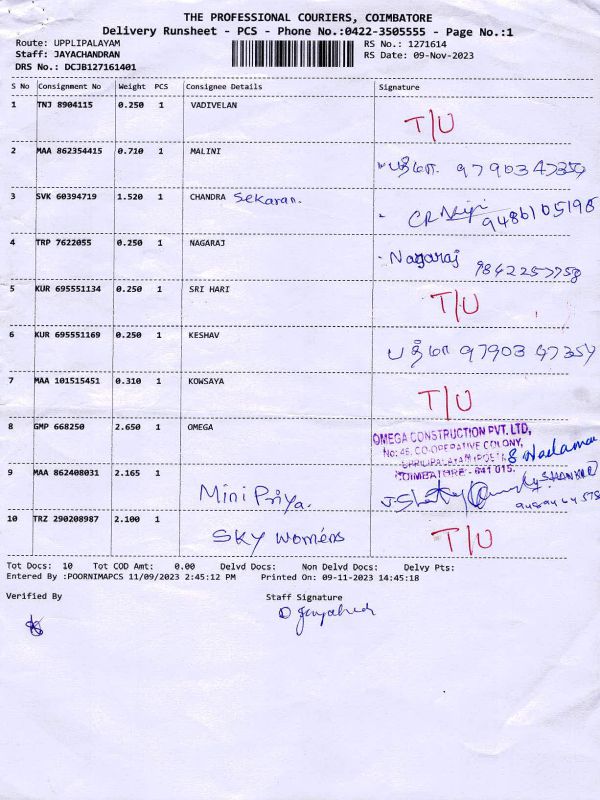 THE PROFESSIONAL COURIERS, COIMBATORE
Delivery Runsheet - PCS - Phone No.:0422-3505555 - Page No.:1
Route: UPPLIPALAYAM
Staff: JAYACHANDRAN
DRS No.: DCJB127161401
RS No.: 1271614
RS Date: 09-Nov-2023
S No Consignment No Weight PCS Consignee Details Signature
1 TNJ 8904115 0.250 1 VADIVELAN T/U
2 MAA 862354415 0.710 1 MALINI பத்மா. 9790347354
3 SVK 60394719 1.520 1 CHANDRA Sekaran. 9486105198
4 TRP 7622055 0.250 1 NAGARAJ Nagaraj 9842257758
5 KUR 695551134 0.250 1 SRI HARI T/U
6 KUR 695551169 0.250 1 KESHAV பத்மா 9790347354
7 MAA 101515451 0.310 1 KOWSAYA T/U
8 GMP 668250 2.650 1 OMEGA
OMEGA CONSTRUCTION PVT. LTD,
No: 46, CO-OPERATIVE COLONY,
UPPILIPALAYAM (POST),
COIMBATORE - 641 015.
9 MAA 862408031 2.165 1 Mini Priya.
10 TRZ 290208987 2.100 1 SKY Womens T/U
Tot Docs: 10 Tot COD Amt: 0.00 Delvd Docs: Non Delvd Docs: Delvy Pts:
Entered By :POORNIMAPCS 11/09/2023 2:45:12 PM Printed On: 09-11-2023 14:45:18
Verified By Staff Signature